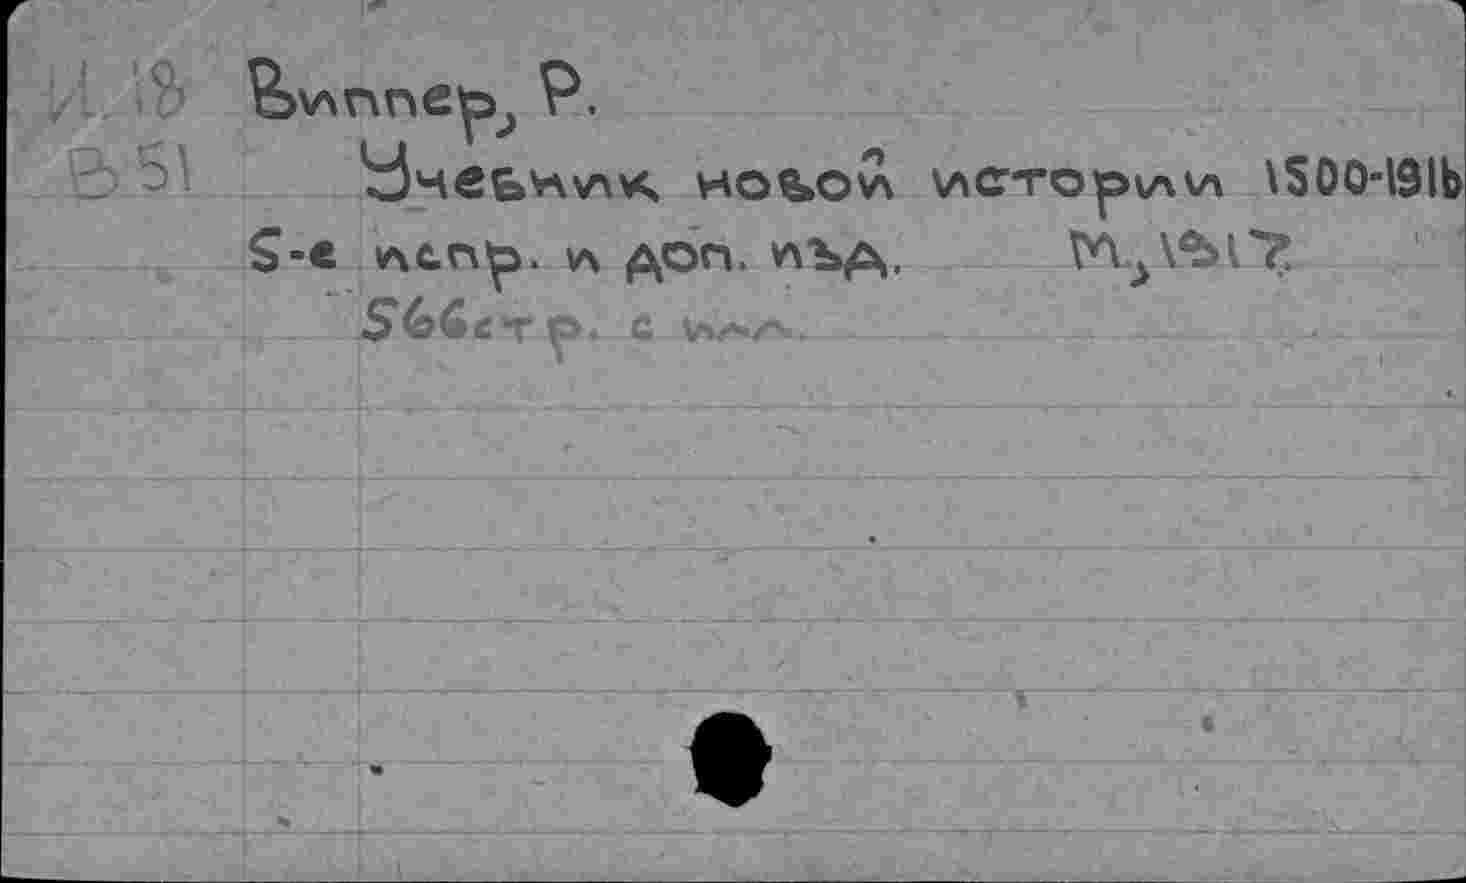 И.18 Виппер, Р.
В51 Учебник новой истории 1500-191
5-е испр. и доп. изд. М., 1917.
566 стр. с илл.